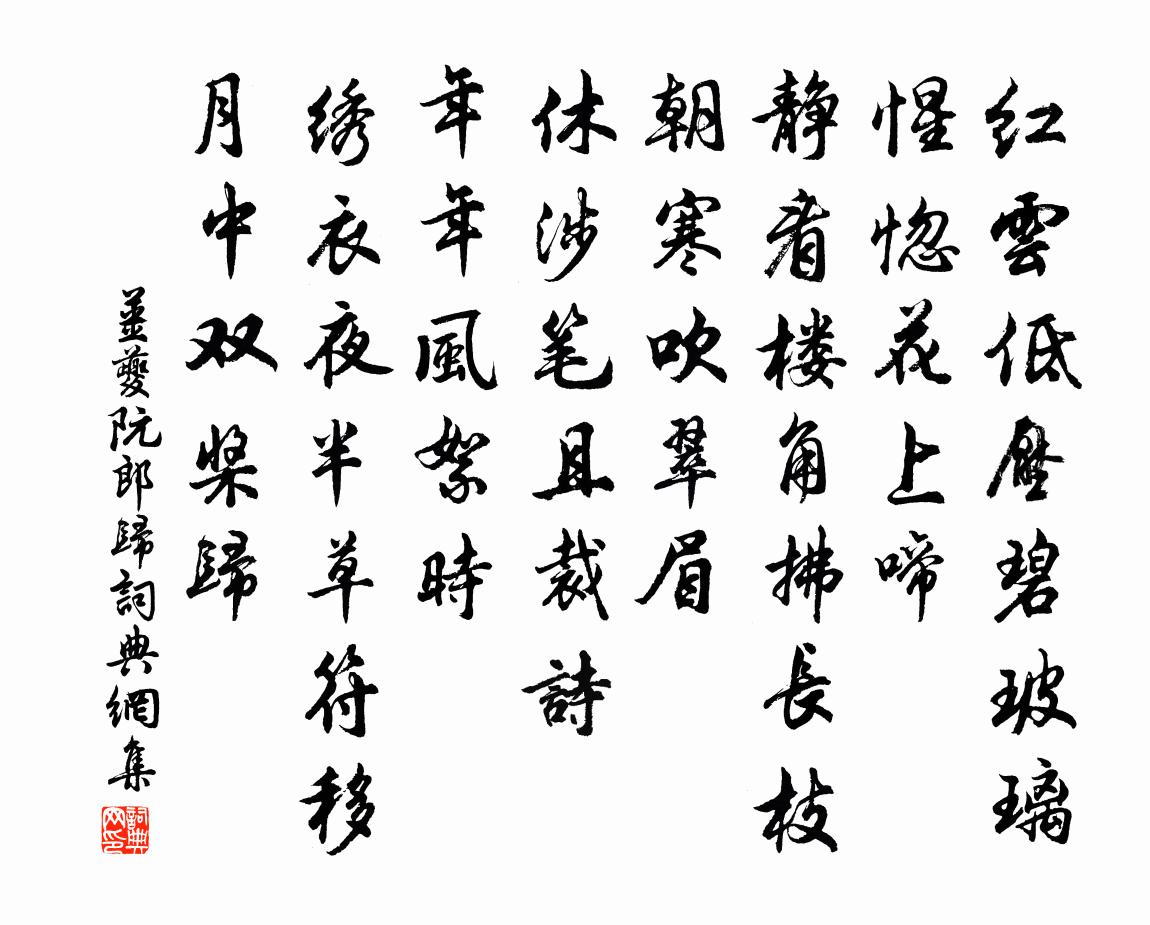 红雲低壓碧玻璃
惺惚花上啼
静看楼角拂長枝
朝寒吹翠眉
休涉笔且裁詩
年年風絮時
绣衣夜半草符移
月中双槳歸
姜夔阮郎歸詞典網集
詞典网印